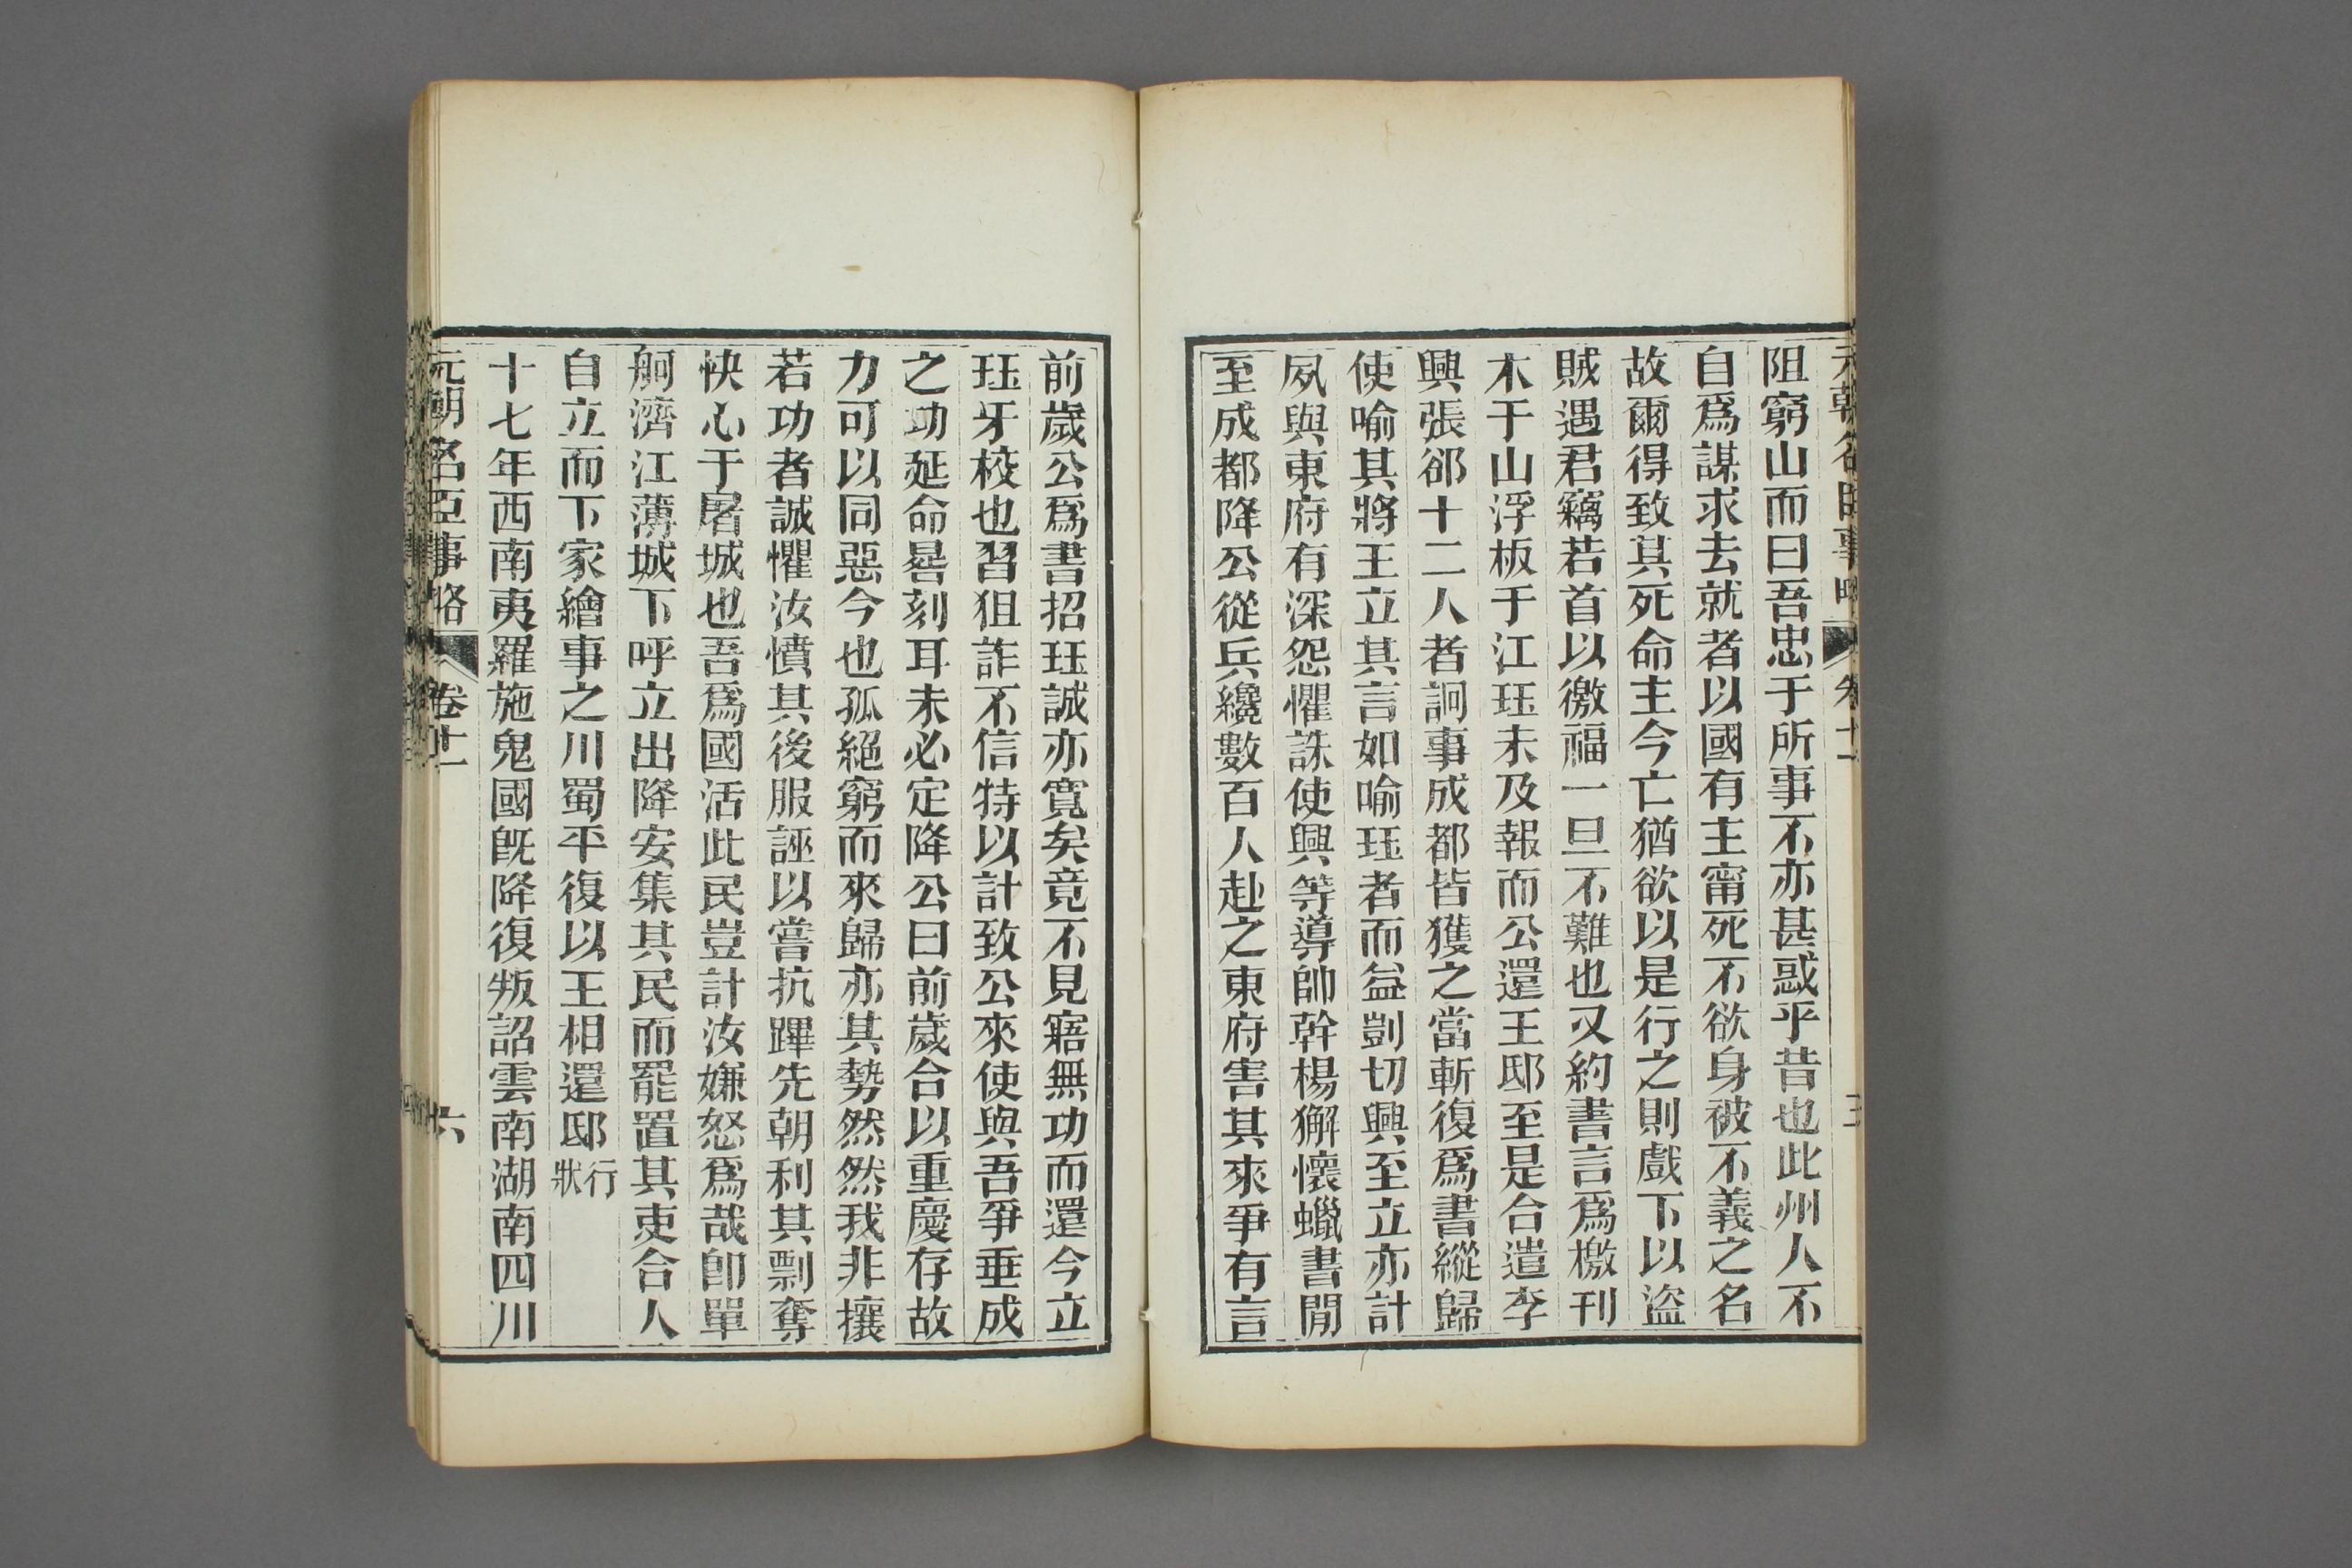 阻窮山而曰吾忠于所事不亦甚惑乎昔也此州人不
自爲謀求去就者以國有主甯死不欲身被不義之名
故爾得致其死命主今亡猶欲以是行之則戲下以盜
賊遇君竊若首以徼福一旦不難也又約書言爲檄刊
木于山浮板于江珏未及報而公還王邸至是合遣李
興張郃十二人者詗事成都皆獲之當斬復爲書縱歸
使喻其將王立其言如喻珏者而益剴切興至立亦計
夙與東府有深怨懼誅使興等導帥幹楊獬懷蠟書間
至成都降公從兵纔數百人赴之東府害其來爭有言
前歲公爲書招珏誠亦寬矣竟不見寤無功而還今立
珏牙校也習狙詐不信特以計致公來使與吾爭垂成
之功延命晷刻耳未必定降公曰前歲合以重慶存故
力可以同惡今也孤絕窮而來歸亦其勢然然我非攘
若功者誠懼汝憤其後服誣以嘗抗蹕先朝利其剽奪
快心于屠城也吾爲國活此民豈計汝嫌怒爲哉卽單
舸濟江薄城下呼立出降安集其民而罷置其吏合人
自立而下家繪事之川蜀平復以王相還邸行狀
十七年西南夷羅施鬼國旣降復叛詔雲南湖南四川
元朝名臣事略 卷十一 六